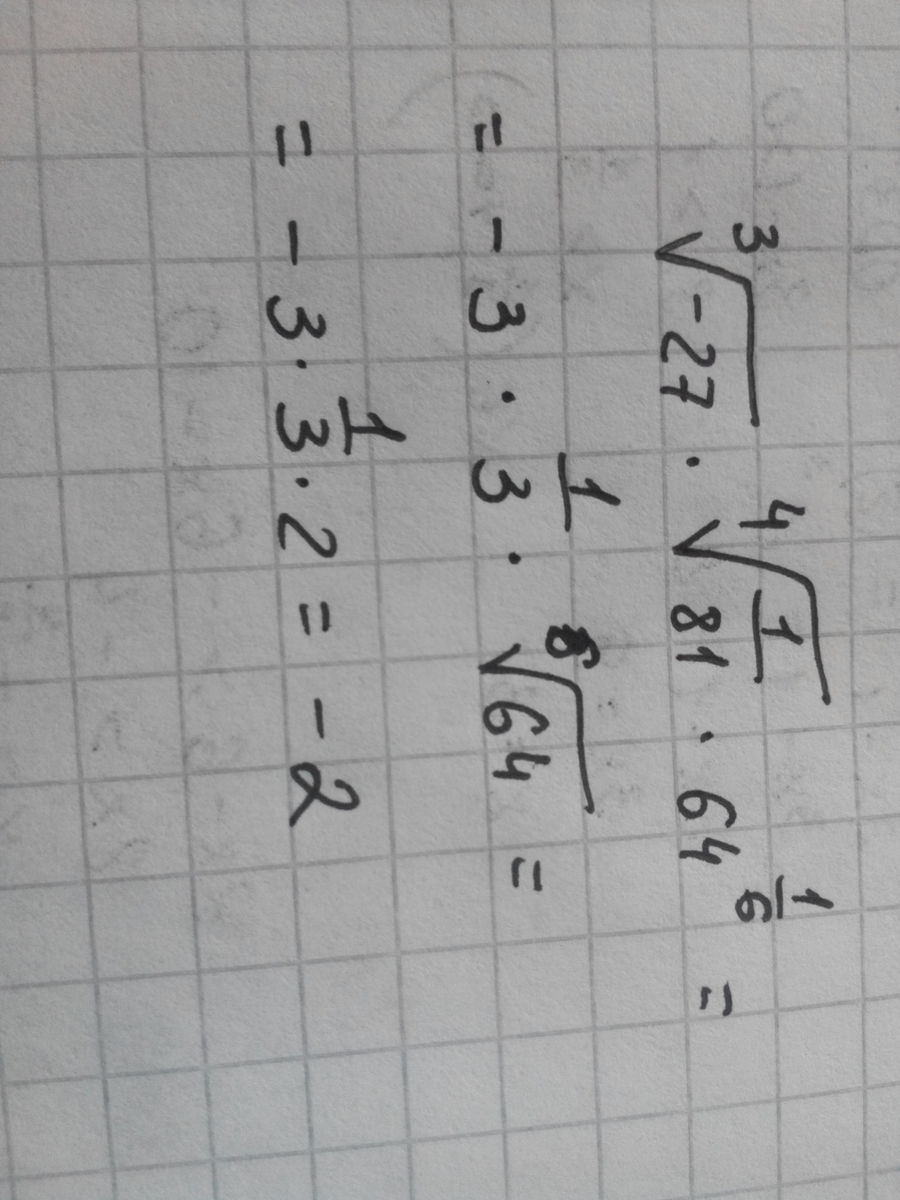 ∛-27 · ∜1/81 · 64^1/6 =
= - 3 · 1/3 · ⁶√64 =
= - 3 · 1/3 · 2 = - 2